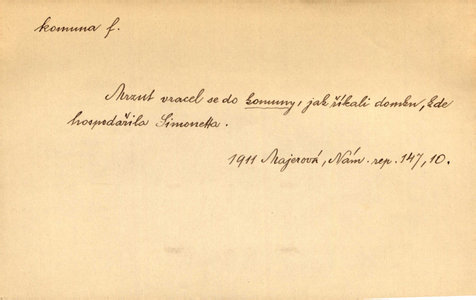 komuna f.
Mrzut vracel se do komuny, jak říkali domku, kde
hospodařila Simonetta.
1911 Majerová, Nám. rep. 147, 10.